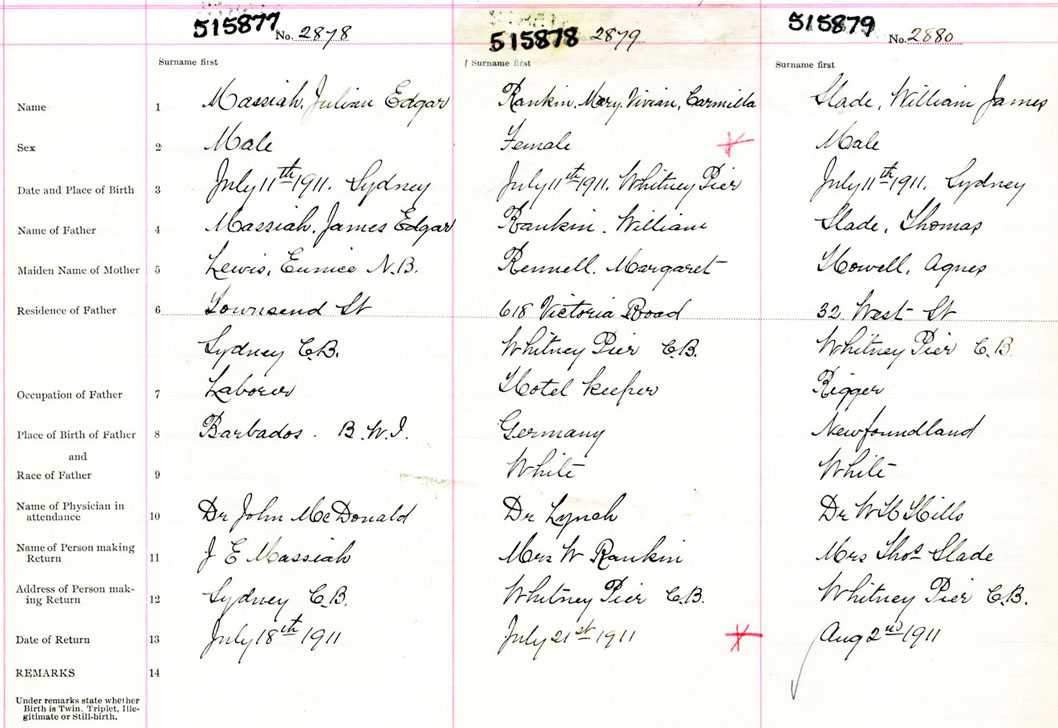 515877 No. 2878 515878 2879 515879 No. 2880
Surname first Surname first Surname first
Name 1 Massiah, Julian Edgar Rankin, Mary, Vivian, Carmilla Slade, William James
Sex 2 Male Female Male
Date and Place of Birth 3 July 11th 1911. Sydney July 11th 1911. Whitney Pier July 11th 1911. Sydney
Name of Father 4 Massiah, James Edgar Rankin. William Slade, Thomas
Maiden Name of Mother 5 Lewis, Eunice N.B. Rennell. Margaret Howell, Agnes
Residence of Father 6 Townsend St 618 Victoria Road 32 West St
Sydney C.B. Whitney Pier C.B. Whitney Pier C.B.
Occupation of Father 7 Laborer Hotel keeper Rigger
Place of Birth of Father 8 Barbados. B.W.I. Germany Newfoundland
and
Race of Father 9 White White
Name of Physician in
attendance 10 Dr John McDonald Dr Lynch Dr W H Hills
Name of Person making
Return 11 J E Massiah Mrs W Rankin Mrs Thos Slade
Address of Person mak-
ing Return 12 Sydney C.B. Whitney Pier C.B. Whitney Pier C.B.
Date of Return 13 July 18th 1911 July 21st 1911 Aug 2nd 1911
REMARKS 14
Under remarks state whether
Birth is Twin, Triplet, Ille-
gitimate or Still-birth.